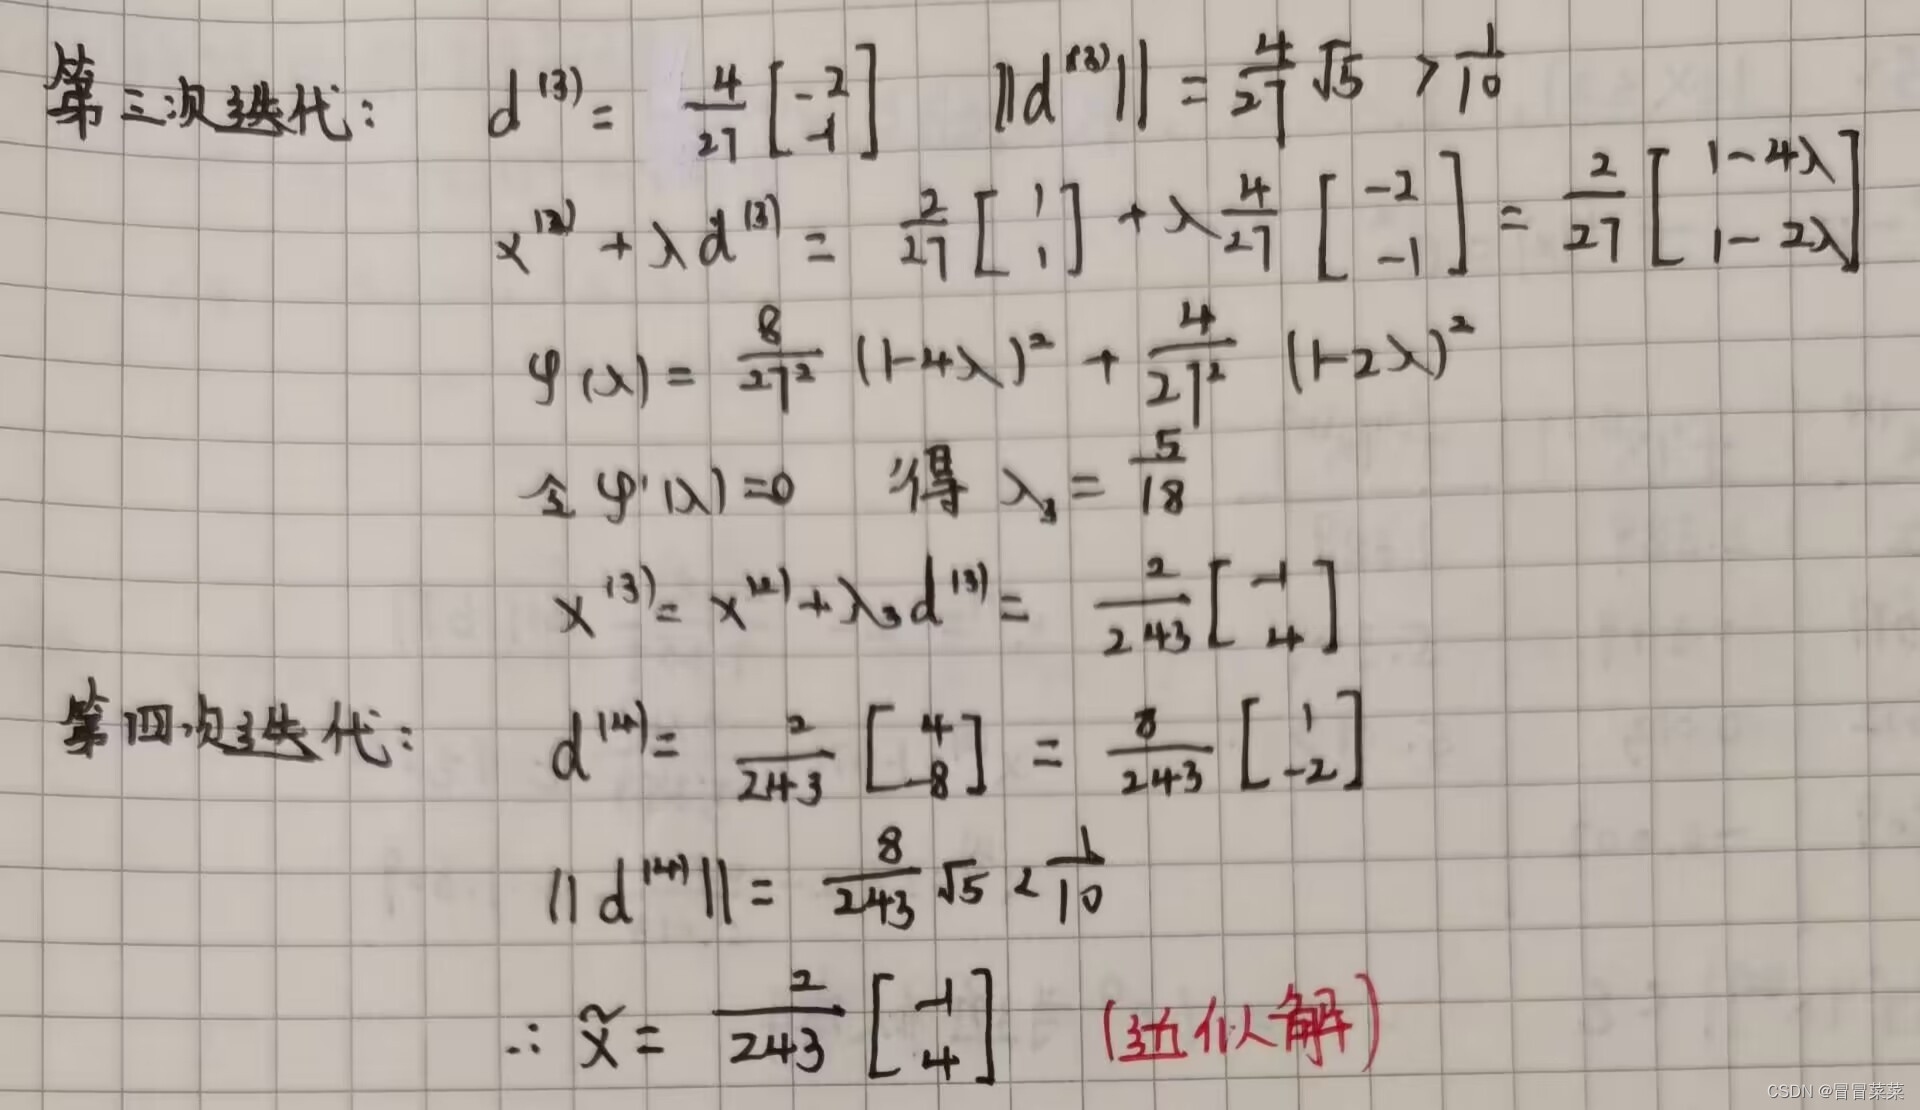 第三次迭代: d⁽³⁾ = 4/27 [-2 -1] ||d⁽³⁾|| = 4/27 √5 > 1/10
x⁽²⁾ + λd⁽³⁾ = 2/27 [1 1] + λ 4/27 [-2 -1] = 2/27 [1-4λ 1-2λ]
φ(λ) = 8/27² (1-4λ)² + 4/27² (1-2λ)²
令 φ'(λ)=0 得 λ₃ = 5/18
x⁽³⁾ = x⁽²⁾ + λ₃d⁽³⁾ = 2/243 [-1 4]
第四次迭代: d⁽⁴⁾ = 2/243 [4 -8] = 8/243 [1 -2]
||d⁽⁴⁾|| = 8/243 √5 < 1/10
∴ x̃ = 2/243 [-1 4] (近似解)
CSDN @冒冒菜菜